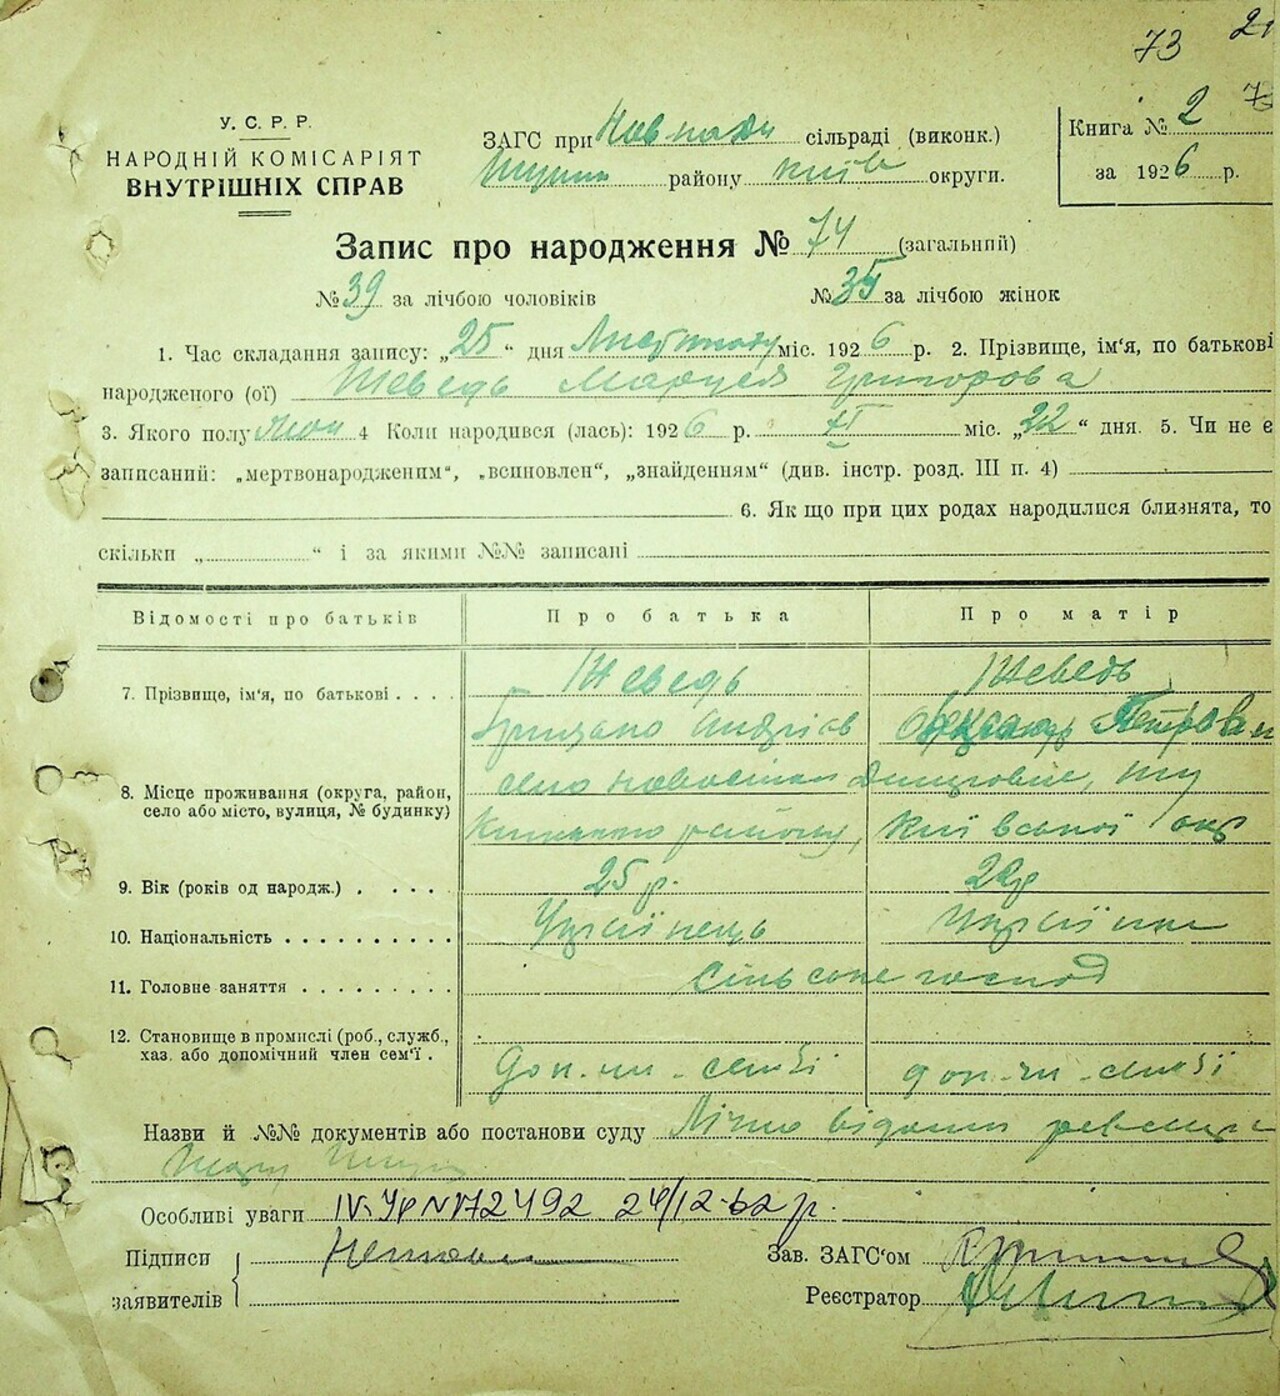 73 21
У. С. Р. Р.
НАРОДНІЙ КОМІСАРІЯТ
ВНУТРІШНІХ СПРАВ
ЗАГС при сільраді (виконк.)
району Київ округи.
Книга № 2
за 1926 р.
Запис про народження № 74 (загальний)
№ 39 за лічбою чоловіків № 35 за лічбою жінок
1. Час складання запису: „25“ дня Листопаду міс. 1926 р. 2. Прізвище, ім‘я, по батькові
народженого (ої) Шеведь Григорова
3. Якого полу 4 Коли народився (лась): 1926 р. XI міс. „22“ дня. 5. Чи не є
записаний: „мертвонародженим“, „всиновлен“, „знайденням“ (див. інстр. розд. III п. 4)
6. Як що при цих родах народилися близнята, то
скільки „ “ і за якими №№ записані
Відомості про батьків Про батька Про матір
7. Прізвище, ім‘я, по батькові . . . . Шеведь Шеведь
Андріїв Петрова
8. Місце проживання (округа, район, село або місто, вулиця, № будинку) село
району, Київської окр
9. Вік (років од народж.) . . . . . 25 р.
10. Національність . . . . . . . . . . Українець Українка
11. Головне заняття . . . . . . . . . Сільське господ
12. Становище в промислі (роб., служб., хаз. або допомічний член сем‘ї .
Доп. чл. семьї доп. чл. семьї
Назви й №№ документів або постанови суду Лічно відомі
Особливі уваги IV-УР № 172492 24/12-62 р.
Підписи
заявителів
Зав. ЗАГС‘ом
Реєстратор